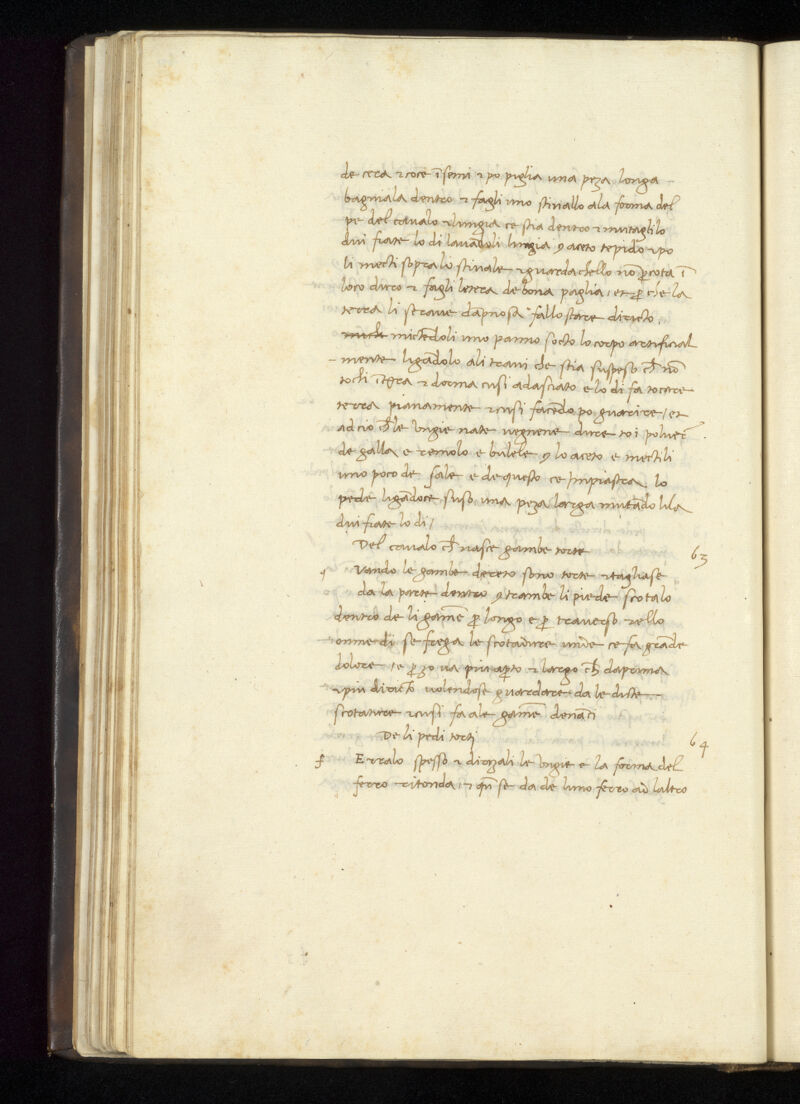 de cera ⁊ coce īsemi ⁊ po piglia una peza longa
bagniala dentro ⁊ fagli uno stiuallo ala forma del
pe del cauallo ⁊ lungia ce stia dentro ⁊ mutaglilo
dui fiate lo di lauādoli lungia ꝯ aceto tepido ⁊ po
li mecti sopra lo stiuale ⁊ guarda chello nō ꝑcota ī
loco duro ⁊ fagli letera de bona paglia / et ꝑ che la
terra li serave dapnosa fallo stare diricto.
mictēdoli uno panno socto lo corpo artificial
mente ligādolo ali traui che stia suspeso ch̄ nō
tochi ītr̄a ⁊ dorma cusi adasciato e lo di fa tocare
terra pianamente ⁊ cusi facēdo po guarire / et
ad cio ch̄ le ungie nate uegnene dure toi poluer̄
de galla e remolo e bulele ꝯ lo aceto e mectili
uno poco de sale e de questo ce impiastra lo
pede ligādoce suso una peza larga mutādolila
dui fiate lo di /
Del cauallo ch̄ nasce gambe torte 63
q Vando le gambe dereto sono torte ⁊ tagliase
da la parte dentro ꝯ trambe li piede scotalo
dentro de li gamē ꝑ longo e ꝑ trauerso ⁊ ello
omne di se frega le scotature unde ce fa grāde
dolore ⁊ e ꝑ zo ua piu aꝑto ⁊ largo ch̄ da prima
⁊ piu diricto uolendose guardare da le dicte
scotature ⁊ cusi fa ale gamē denāti
De li pedi torti 64
f Erralo spesso ⁊ dirizali le ungie e la forma del
ferro ritonda ⁊ qn̄ se da de luno ferro ad laltro